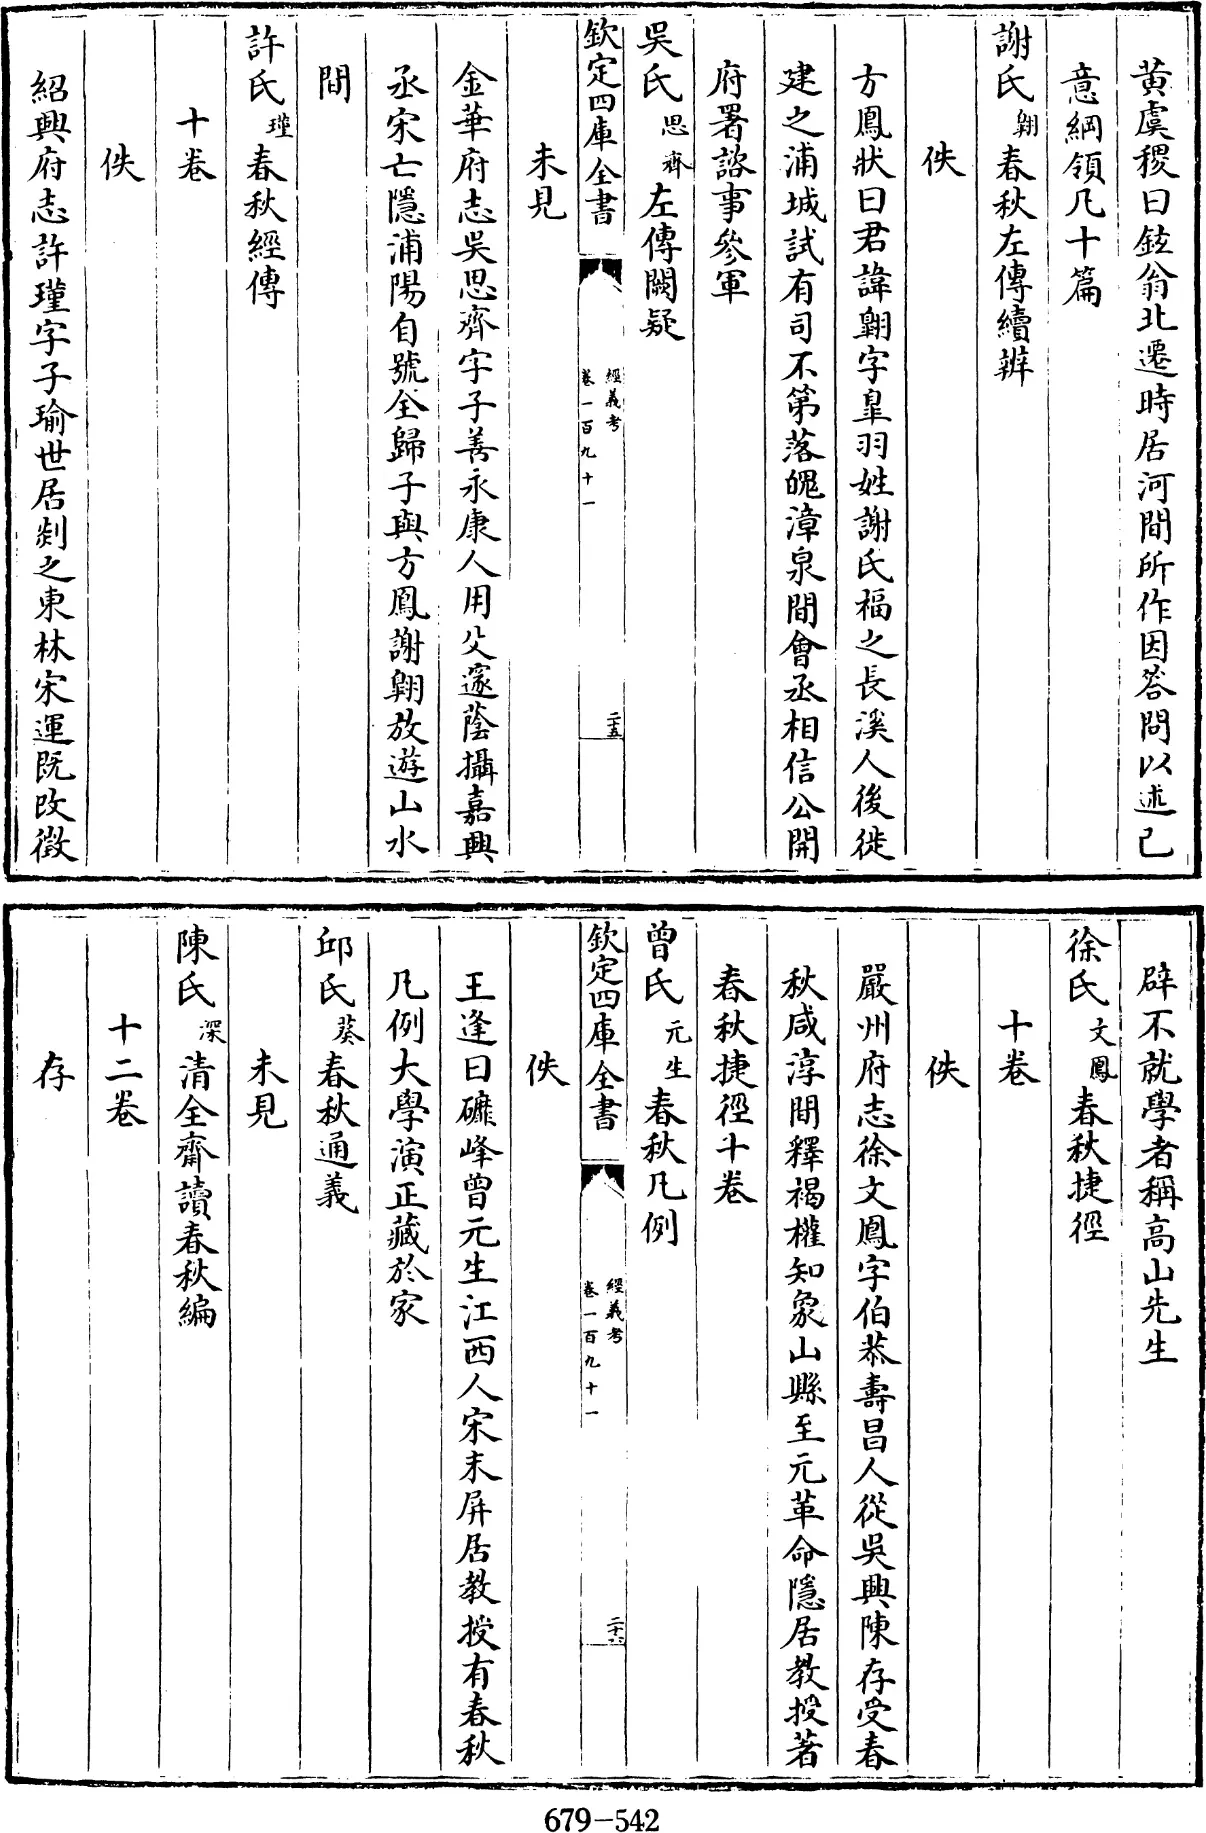 黄虞稷曰鉉翁北遷時居河間所作因答問以述己
意綱領凡十篇
謝氏翺春秋左傳續辨
佚
方鳳狀曰君諱翺字臯羽姓謝氏福之長溪人後徙
建之浦城試有司不第落魄漳泉間會丞相信公開
府署諮事參軍
吳氏思齊左傳闕疑
欽定四庫全書
經義考
卷一百九十一
二十五
未見
金華府志吳思齊字子善永康人用父邃蔭攝嘉興
丞宋亡隱浦陽自號全歸子與方鳳謝翺放遊山水
間
許氏瑾春秋經傳
十卷
佚
紹興府志許瑾字子瑜世居剡之東林宋運既改徵
辟不就學者稱高山先生
徐氏文鳳春秋捷徑
十卷
佚
嚴州府志徐文鳳字伯恭壽昌人從吳興陳存受春
秋咸淳間釋褐權知象山縣至元革命隱居教授著
春秋捷徑十卷
曾氏元生春秋凡例
欽定四庫全書
經義考
卷一百九十一
二十六
佚
王逢曰礳峰曾元生江西人宋末屏居教授有春秋
凡例大學演正藏於家
邱氏葵春秋通義
未見
陳氏深清全齋讀春秋編
十二卷
存
679-542